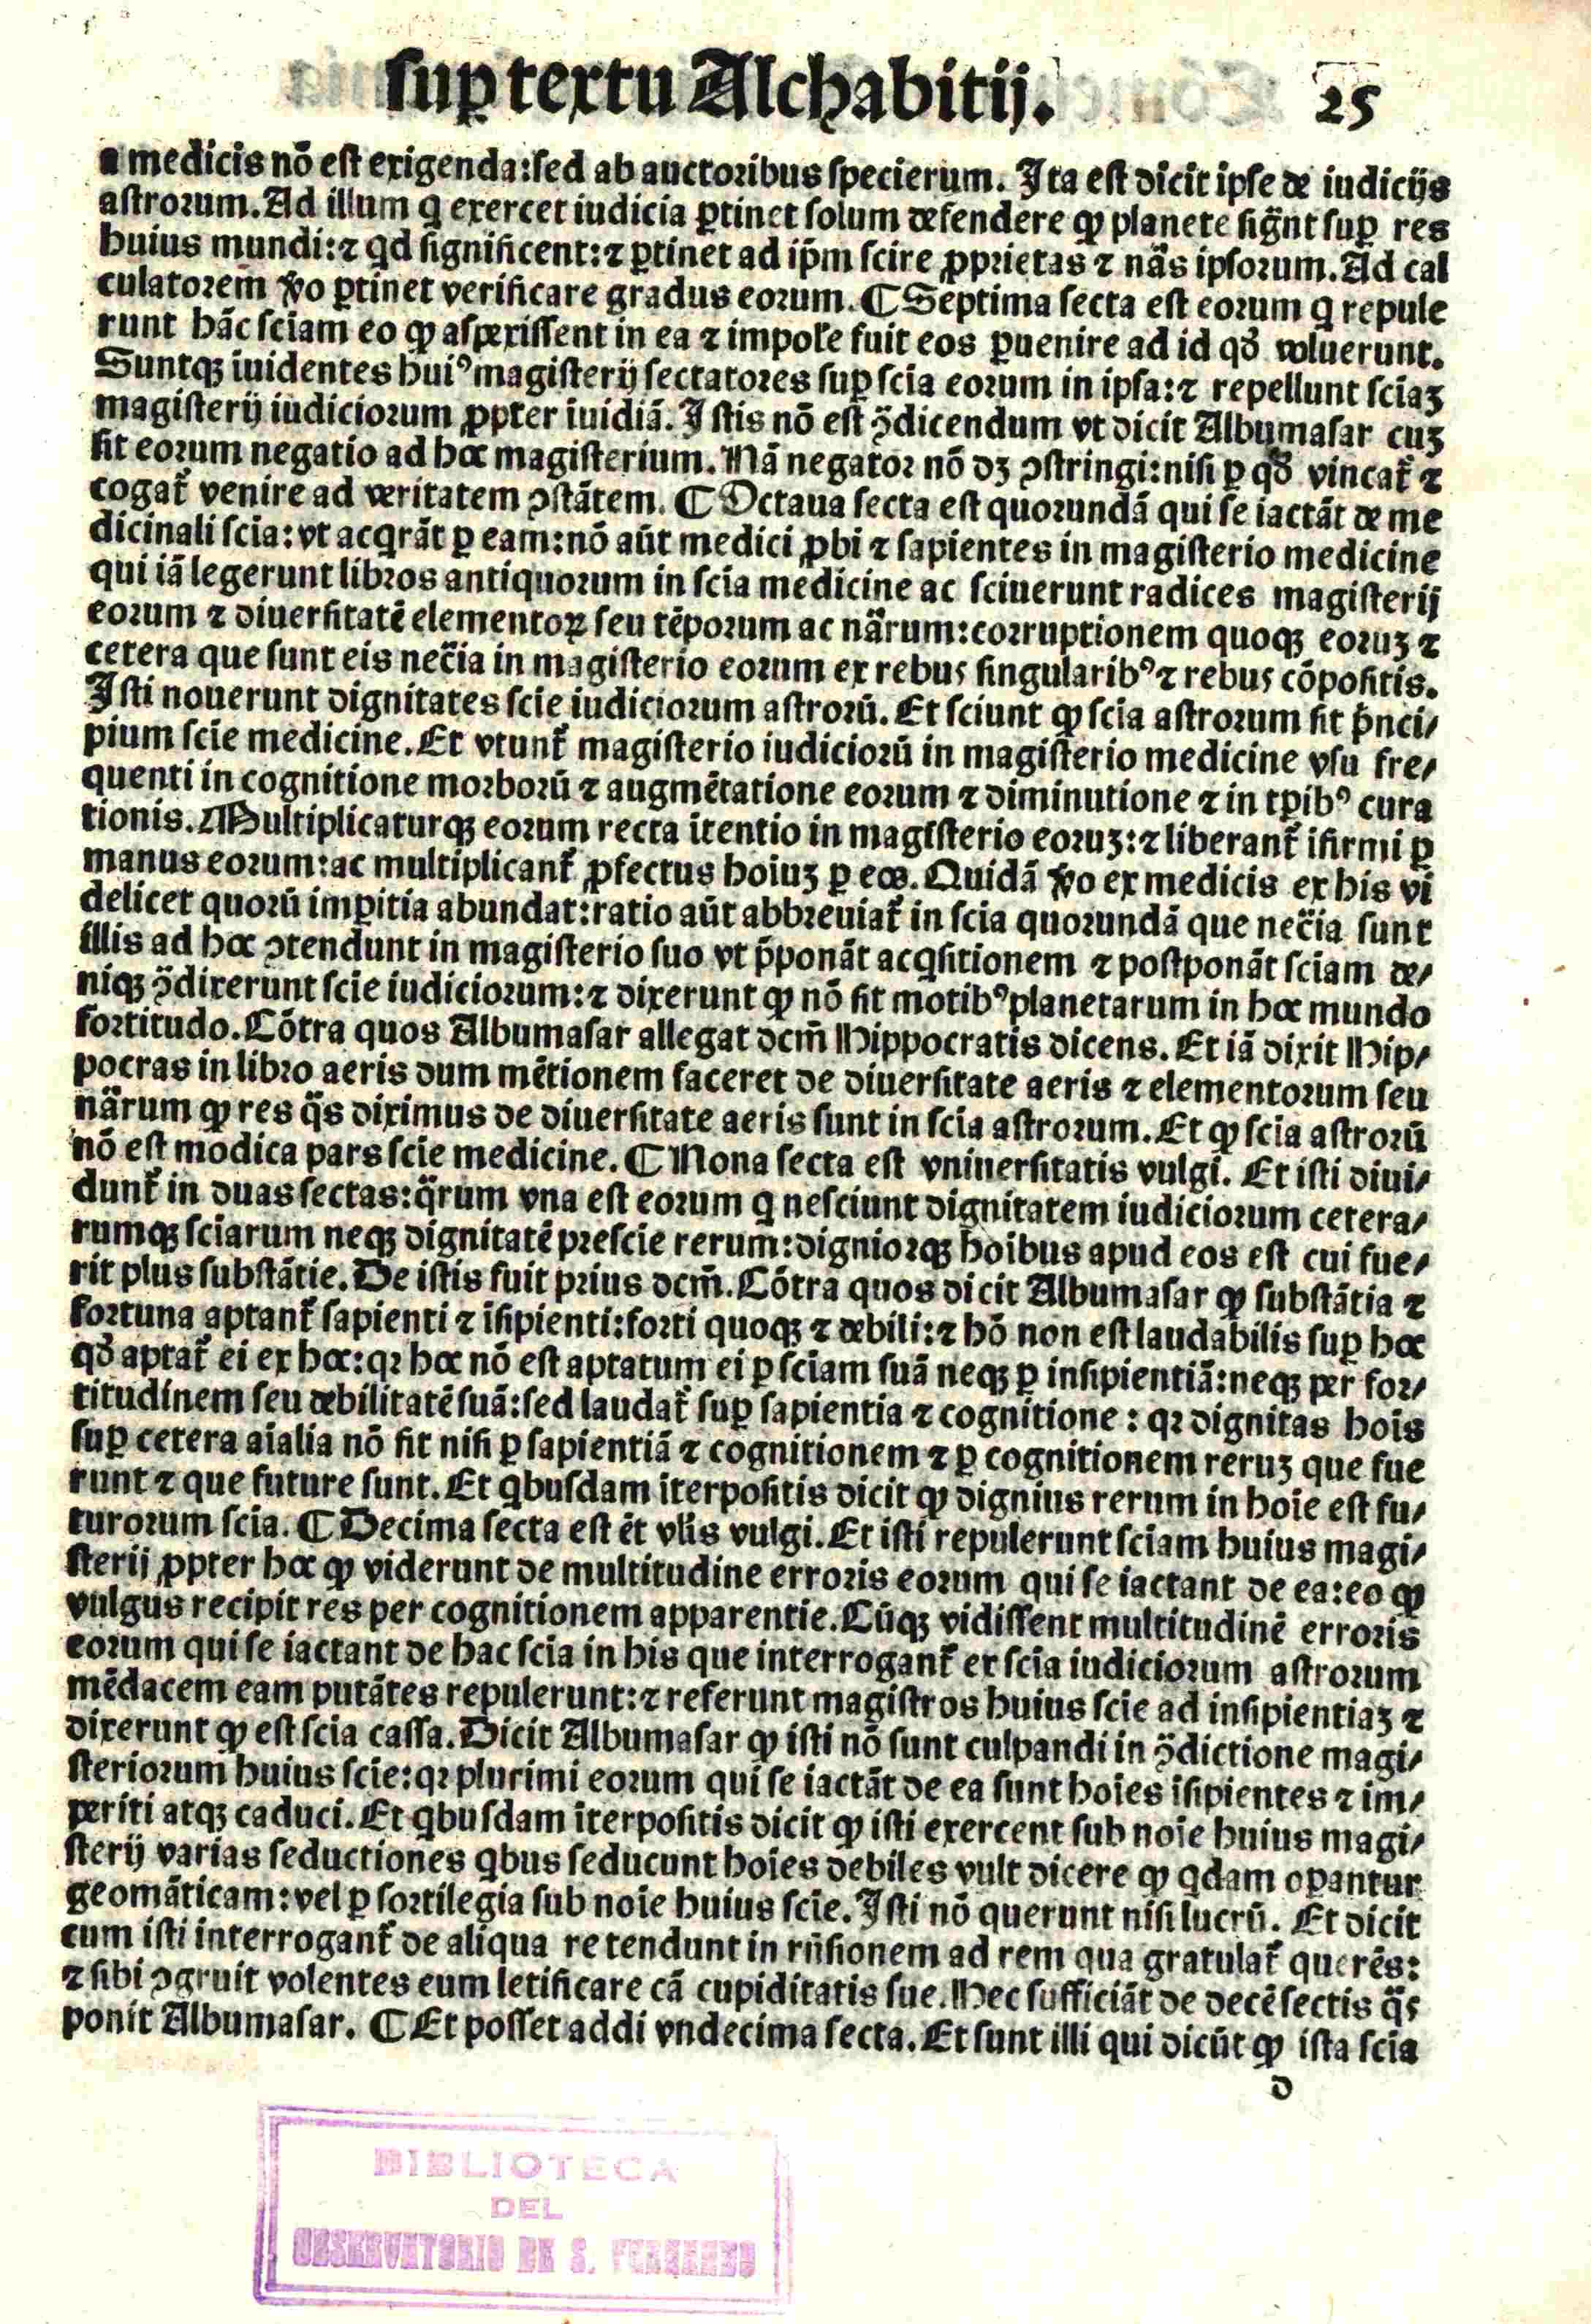 sup̱ textu Alchabitij.
25
a medicis nō est exigenda: sed ab auctoribus specierum. Ita est dicit ipse de iudicijs
astrorum. Ad illum q̇ exercet iudicia p̱tinet solum defendere ꝙ planete sig̃nt sup̱ res
huius mundi: ⁊ qd significent: ⁊ p̱tinet ad ip̄m scire ꝓprietas ⁊ nãs ipsorum. Ad cal
culatorem ꝟo p̱tinet verificare gradus eorum. ¶ Septima secta est eorum q̇ repule
runt hāc sciam eo ꝙ aspexissent in ea ⁊ impole fuit eos p̱uenire ad id qḋ voluerunt.
Suntqꝫ iuidentes huiꝰ magisterij sectatores sup̱ scia eorum in ipsa: ⁊ repellunt sciaꝫ
magisterij iudiciorum ꝓpter īuidiā. Istis nō est ↄ̃dicendum vt dicit Albumasar cuꝫ
sit eorum negatio ad hoc magisterium. Nā negator nō dꝫ ↄstringi: nisi p̱ qḋ vincat̃ ⁊
cogat̃ venire ad veritatem ↄstātem. ¶ Octaua secta est quorundā qui se iactāt de me
dicinali scia: vt acq̇rāt p̱ eam: nō aūt medici ꝓbi ⁊ sapientes in magisterio medicine
qui iā legerunt libros antiquorum in scia medicine ac sciuerunt radices magisterij
eorum ⁊ diuersitatē elementoꝝ seu tēporum ac nãrum: corruptionem quoqꝫ eoruꝫ ⁊
cetera que sunt eis nec̃ia in magisterio eorum ex rebus singularibꝰ ⁊ rebus cōpositis.
Isti nouerunt dignitates scie iudiciorum astrorū. Et sciunt ꝙ scia astrorum sit p̄nci/
pium scie medicine. Et vtunt̃ magisterio iudiciorū in magisterio medicine vsu fre/
quenti in cognitione morborū ⁊ augmētatione eorum ⁊ diminutione ⁊ in tp̱ibꝰ cura
tionis. Multiplicaturqꝫ eorum recta itentio in magisterio eoruꝫ: ⁊ liberant̃ ifirmi p̱
manus eorum: ac multiplicant̃ ꝓfectus hoiuꝫ p̱ eos. Quidā ꝟo ex medicis ex his vi
delicet quorū imp̱itia abundat: ratio aūt abbreuiat̃ in scia quorundā que nec̃ia sunt
illis ad hoc ↄtendunt in magisterio suo vt p̄ponāt acq̇sitionem ⁊ postponāt sciam de/
niqꝫ ↄ̃dixerunt scie iudiciorum: ⁊ dixerunt ꝙ nō sit motibꝰ planetarum in hoc mundo
fortitudo. Cōtra quos Albumasar allegat dcm̄ Hippocratis dicens. Et iā dixit Hip/
pocras in libro aeris dum mētionem faceret de diuersitate aeris ⁊ elementorum seu
nãrum ꝙ res q̃s diximus de diuersitate aeris sunt in scia astrorum. Et ꝙ scia astrorū
nō est modica pars scie medicine. ¶ Nona secta est vniuersitatis vulgi. Et isti diui/
dunt̃ in duas sectas: q̃rum vna est eorum q̇ nesciunt dignitatem iudiciorum cetera/
rumqꝫ sciarum neqꝫ dignitatē prescie rerum: digniorqꝫ hoibus apud eos est cui fue/
rit plus substātie. De istis fuit prius dcm̄. Cōtra quos dicit Albumasar ꝙ substātia ⁊
fortuna aptant̃ sapienti ⁊ īsipienti: forti quoqꝫ ⁊ debili: ⁊ hō non est laudabilis sup̱ hoc
qḋ aptat̃ ei ex hoc: qꝛ hoc nō est aptatum ei p̱ sciam suā neqꝫ p̱ insipientiā: neqꝫ per for/
titudinem seu debilitatē suā: sed laudat̃ sup̱ sapientia ⁊ cognitione: qꝛ dignitas hois
sup̱ cetera aialia nō fit nisi p̱ sapientiā ⁊ cognitionem ⁊ p̱ cognitionem reruꝫ que fue
runt ⁊ que future sunt. Et q̇busdam iterpositis dicit ꝙ dignius rerum in hoie est fu/
turorum scia. ¶ Decima secta est ēt vlis vulgi. Et isti repulerunt sciam huius magi/
sterij ꝓpter hoc ꝙ viderunt de multitudine erroris eorum qui se iactant de ea: eo ꝙ
vulgus recipit res per cognitionem apparentie. Cūqꝫ vidissent multitudinē erroris
eorum qui se iactant de hac scia in his que interrogant̃ ex scia iudiciorum astrorum
mēdacem eam putātes repulerunt: ⁊ referunt magistros huius scie ad insipientiaꝫ ⁊
dixerunt ꝙ est scia cassa. Dicit Albumasar ꝙ isti nō sunt culpandi in ↄ̃dictione magi/
steriorum huius scie: qꝛ plurimi eorum qui se iactāt de ea sunt hoies isipientes ⁊ im/
periti atqꝫ caduci. Et q̇busdam iterpositis dicit ꝙ isti exercent sub noie huius magi/
sterij varias seductiones q̇bus seducunt hoies debiles vult dicere ꝙ q̇dam op̱antur
geomāticam: vel p̱ sortilegia sub noie huius scie. Isti nō querunt nisi lucrū. Et dicit
cum isti interrogant̃ de aliqua re tendunt in rn̄sionem ad rem qua gratulat̃ querēs:
⁊ sibi ↄgruit volentes eum letificare cā cupiditatis sue. Hec sufficiāt de decē sectis q̃s
ponit Albumasar. ¶ Et posset addi vndecima secta. Et sunt illi qui dicūt ꝙ ista scia
d
BIBLIOTECA
DEL
OBSERVATORIO DE S. FERNANDO